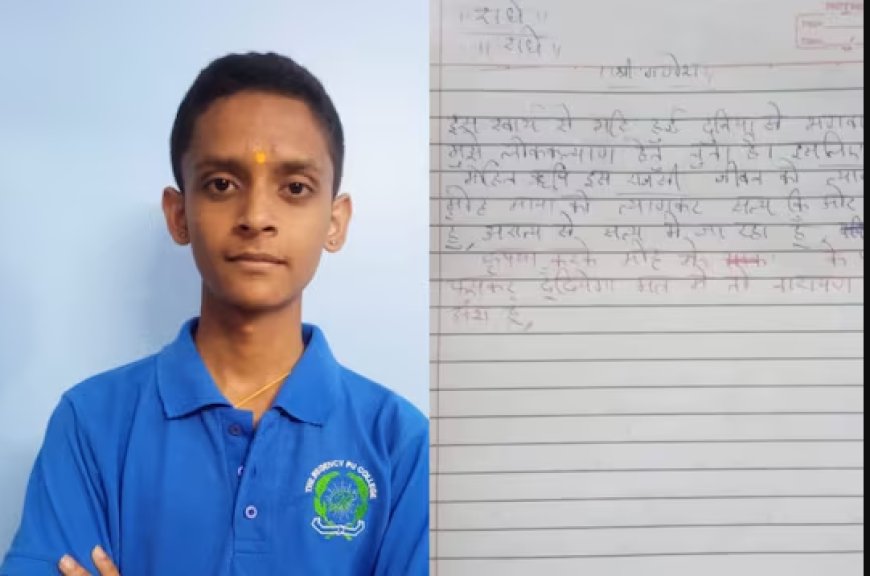 THE REGENCY PU COLLEGE
॥ राधे ॥
॥ राधे ॥
॥ श्री गणेश ॥
इस स्वार्थ से भरि हुई दुनिया से भगवा
मुझे लोककल्याण हेतु चुना है। इसलिए
मोहित ऋषि इस जीवन को त्या
मोह माया को त्यागकर सत्य कि ओर
हु, असत्य से सत्य में जा रहा हूँ,
कृपया करके मोह में के
फसकर ढूँढियेगा मत में तो नारायण
अंश हूँ,